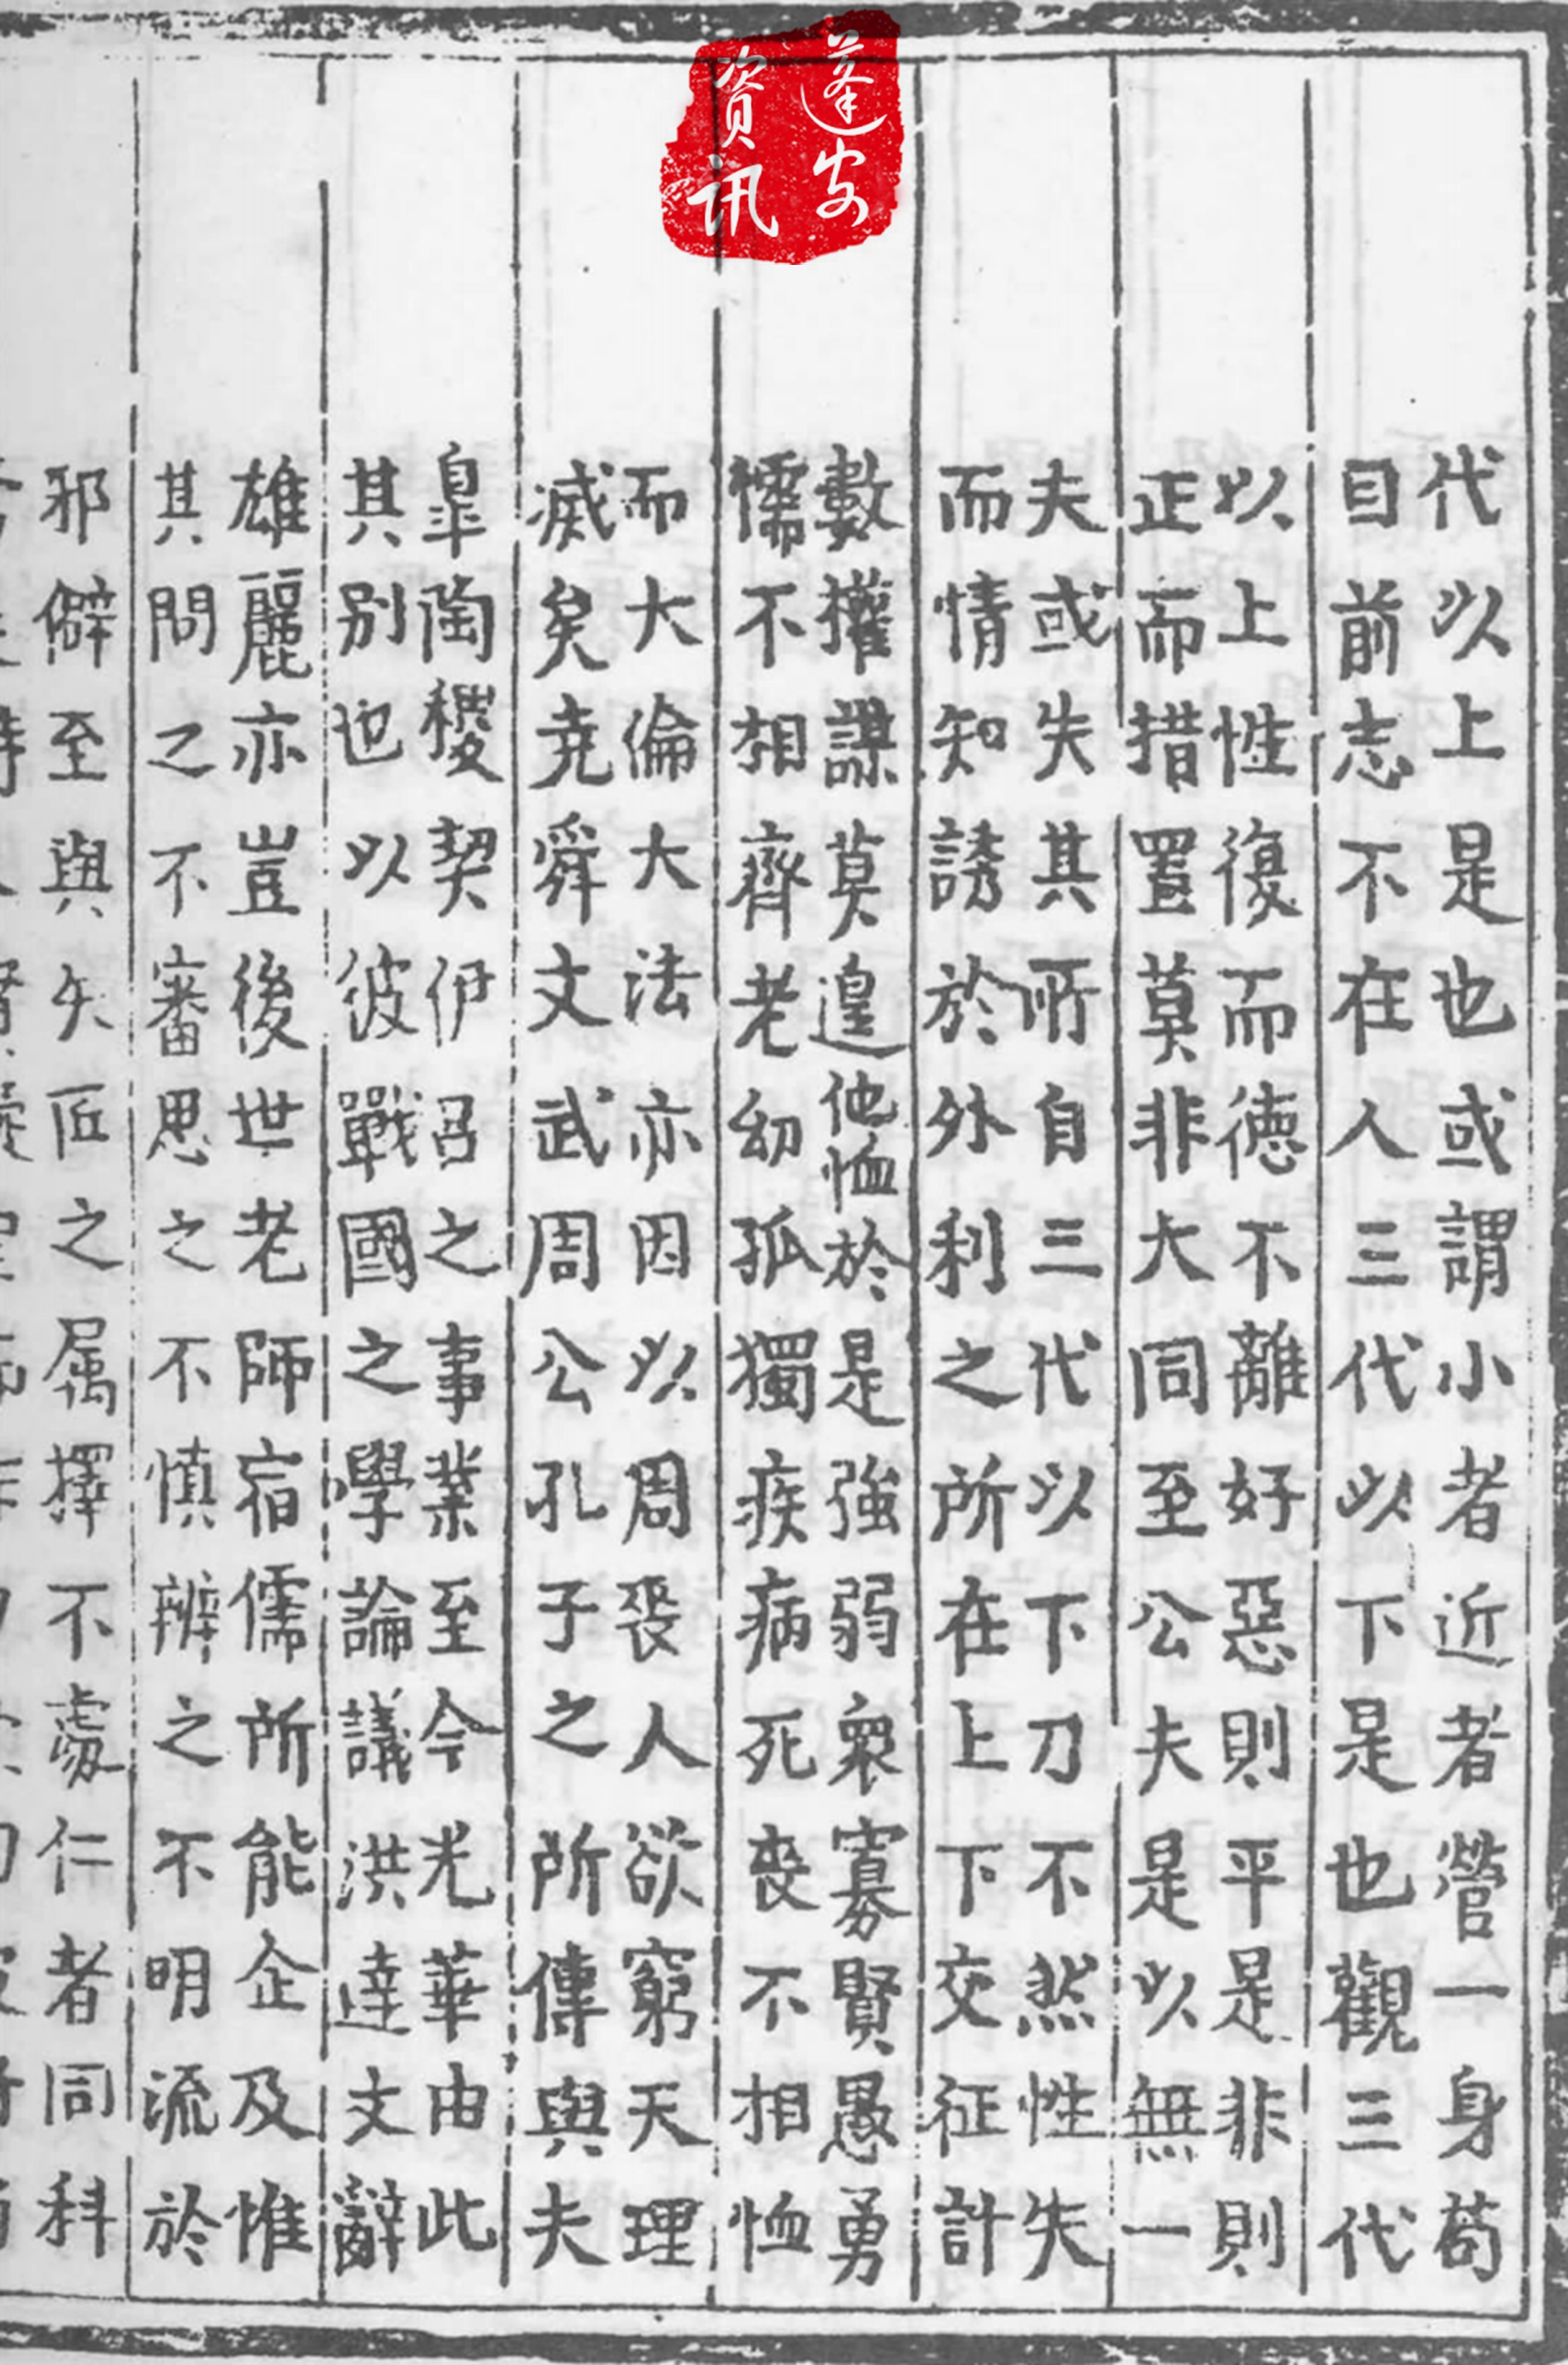 蓬安
资讯
代以上是也或謂小者近者營一身苟
目前志不在人三代以下是也觀三代
以上性復而德不離好惡則平是非則
正而措置莫非大同至公夫是以無一
夫或失其所自三代以下刀不然性失
而情知誘於外利之所在上下交征計
數權謀莫遑他恤於是強弱衆寡賢愚勇
懦不相齊老幼孤獨疾病死喪不相恤
而大倫大法亦因以周喪人欲窮天理
滅矣堯舜文武周公孔子之所傳與夫
皐陶稷契伊呂之事業至今光華由此
其別也以彼戰國之學論議洪達文辭
雄麗亦豈後世老師宿儒所能企及惟
其問之不審思之不慎辨之不明流於
邪僻至與矢匠之属擇不處仁者同科